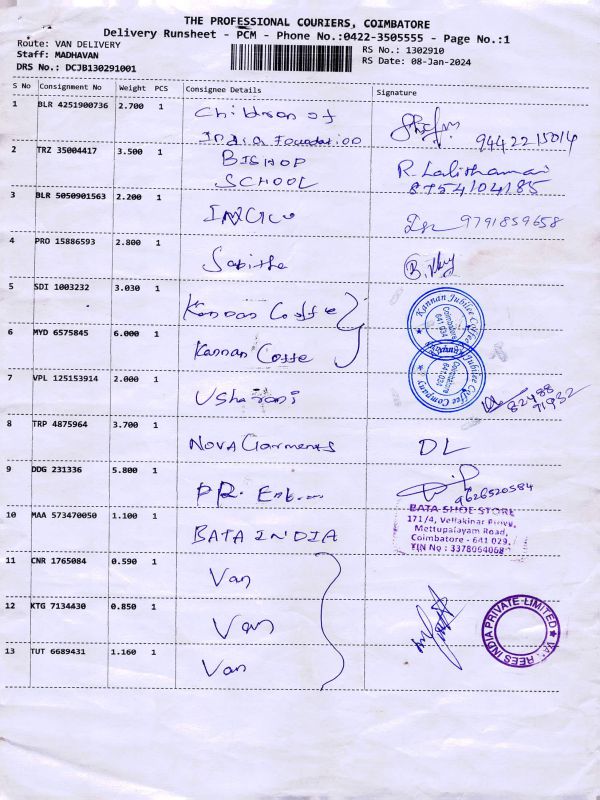 THE PROFESSIONAL COURIERS, COIMBATORE
Delivery Runsheet - PCM - Phone No.:0422-3505555 - Page No.:1
Route: VAN DELIVERY
Staff: MADHAVAN
DRS No.: DCJB130291001
RS No.: 1302910
RS Date: 08-Jan-2024
S No Consignment No Weight PCS Consignee Details Signature
1 BLR 4251900736 2.700 1 Children of
India Foundation 9442215014
2 TRZ 35004417 3.500 1 BISHOP
SCHOOL R. Lalithamani
8754104185
3 BLR 5050901563 2.200 1 9791859658
4 PRO 15886593 2.800 1 Sabitha
5 SDI 1003232 3.030 1 Kannan Coffe
6 MYD 6575845 6.000 1 Kannan Coffe
Kannan Jubilee Coffee Company
Coimbatore
641 034
Kannan Jubilee Coffee Company
Coimbatore
641 034
7 VPL 125153914 2.000 1 Usharani 82488
71932
8 TRP 4875964 3.700 1 NOVA Garments DL
9 DDG 231336 5.800 1 PR. Ent 9626520584
10 MAA 573470050 1.100 1 BATA INDIA
BATA SHOE STORE
171/4, Vellakinar Pirivu,
Mettupalayam Road,
Coimbatore - 641 029.
TIN No : 3378064068
11 CNR 1765084 0.590 1 Van
12 KTG 7134430 0.850 1 Van
13 TUT 6689431 1.160 1 Van
REES INDIA PRIVATE LIMITED